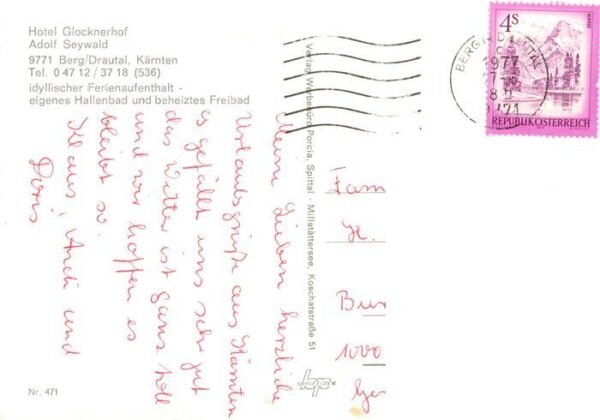 Hotel Glocknerhof
Adolf Seywald
9771 Berg/Drautal, Kärnten
Tel. 0 47 12 / 37 18 (536)
idyllischer Ferienaufenthalt -
eigenes Hallenbad und beheiztes Freibad
Meine Lieben herzliche
Urlaubsgrüße aus Kärnten
es gefällt uns sehr gut
das Wetter ist ganz toll
und wir hoffen es
bleibt so.
Klaus, Andi und
Doris
Nr. 471
Verlag Werbebüro Porcia, Spittal - Millstättersee, Koschatstraße 51
4S
REPUBLIK ÖSTERREICH
BERG I. DRAUTAL
1977
9771
Fam
H.
Bur
1000